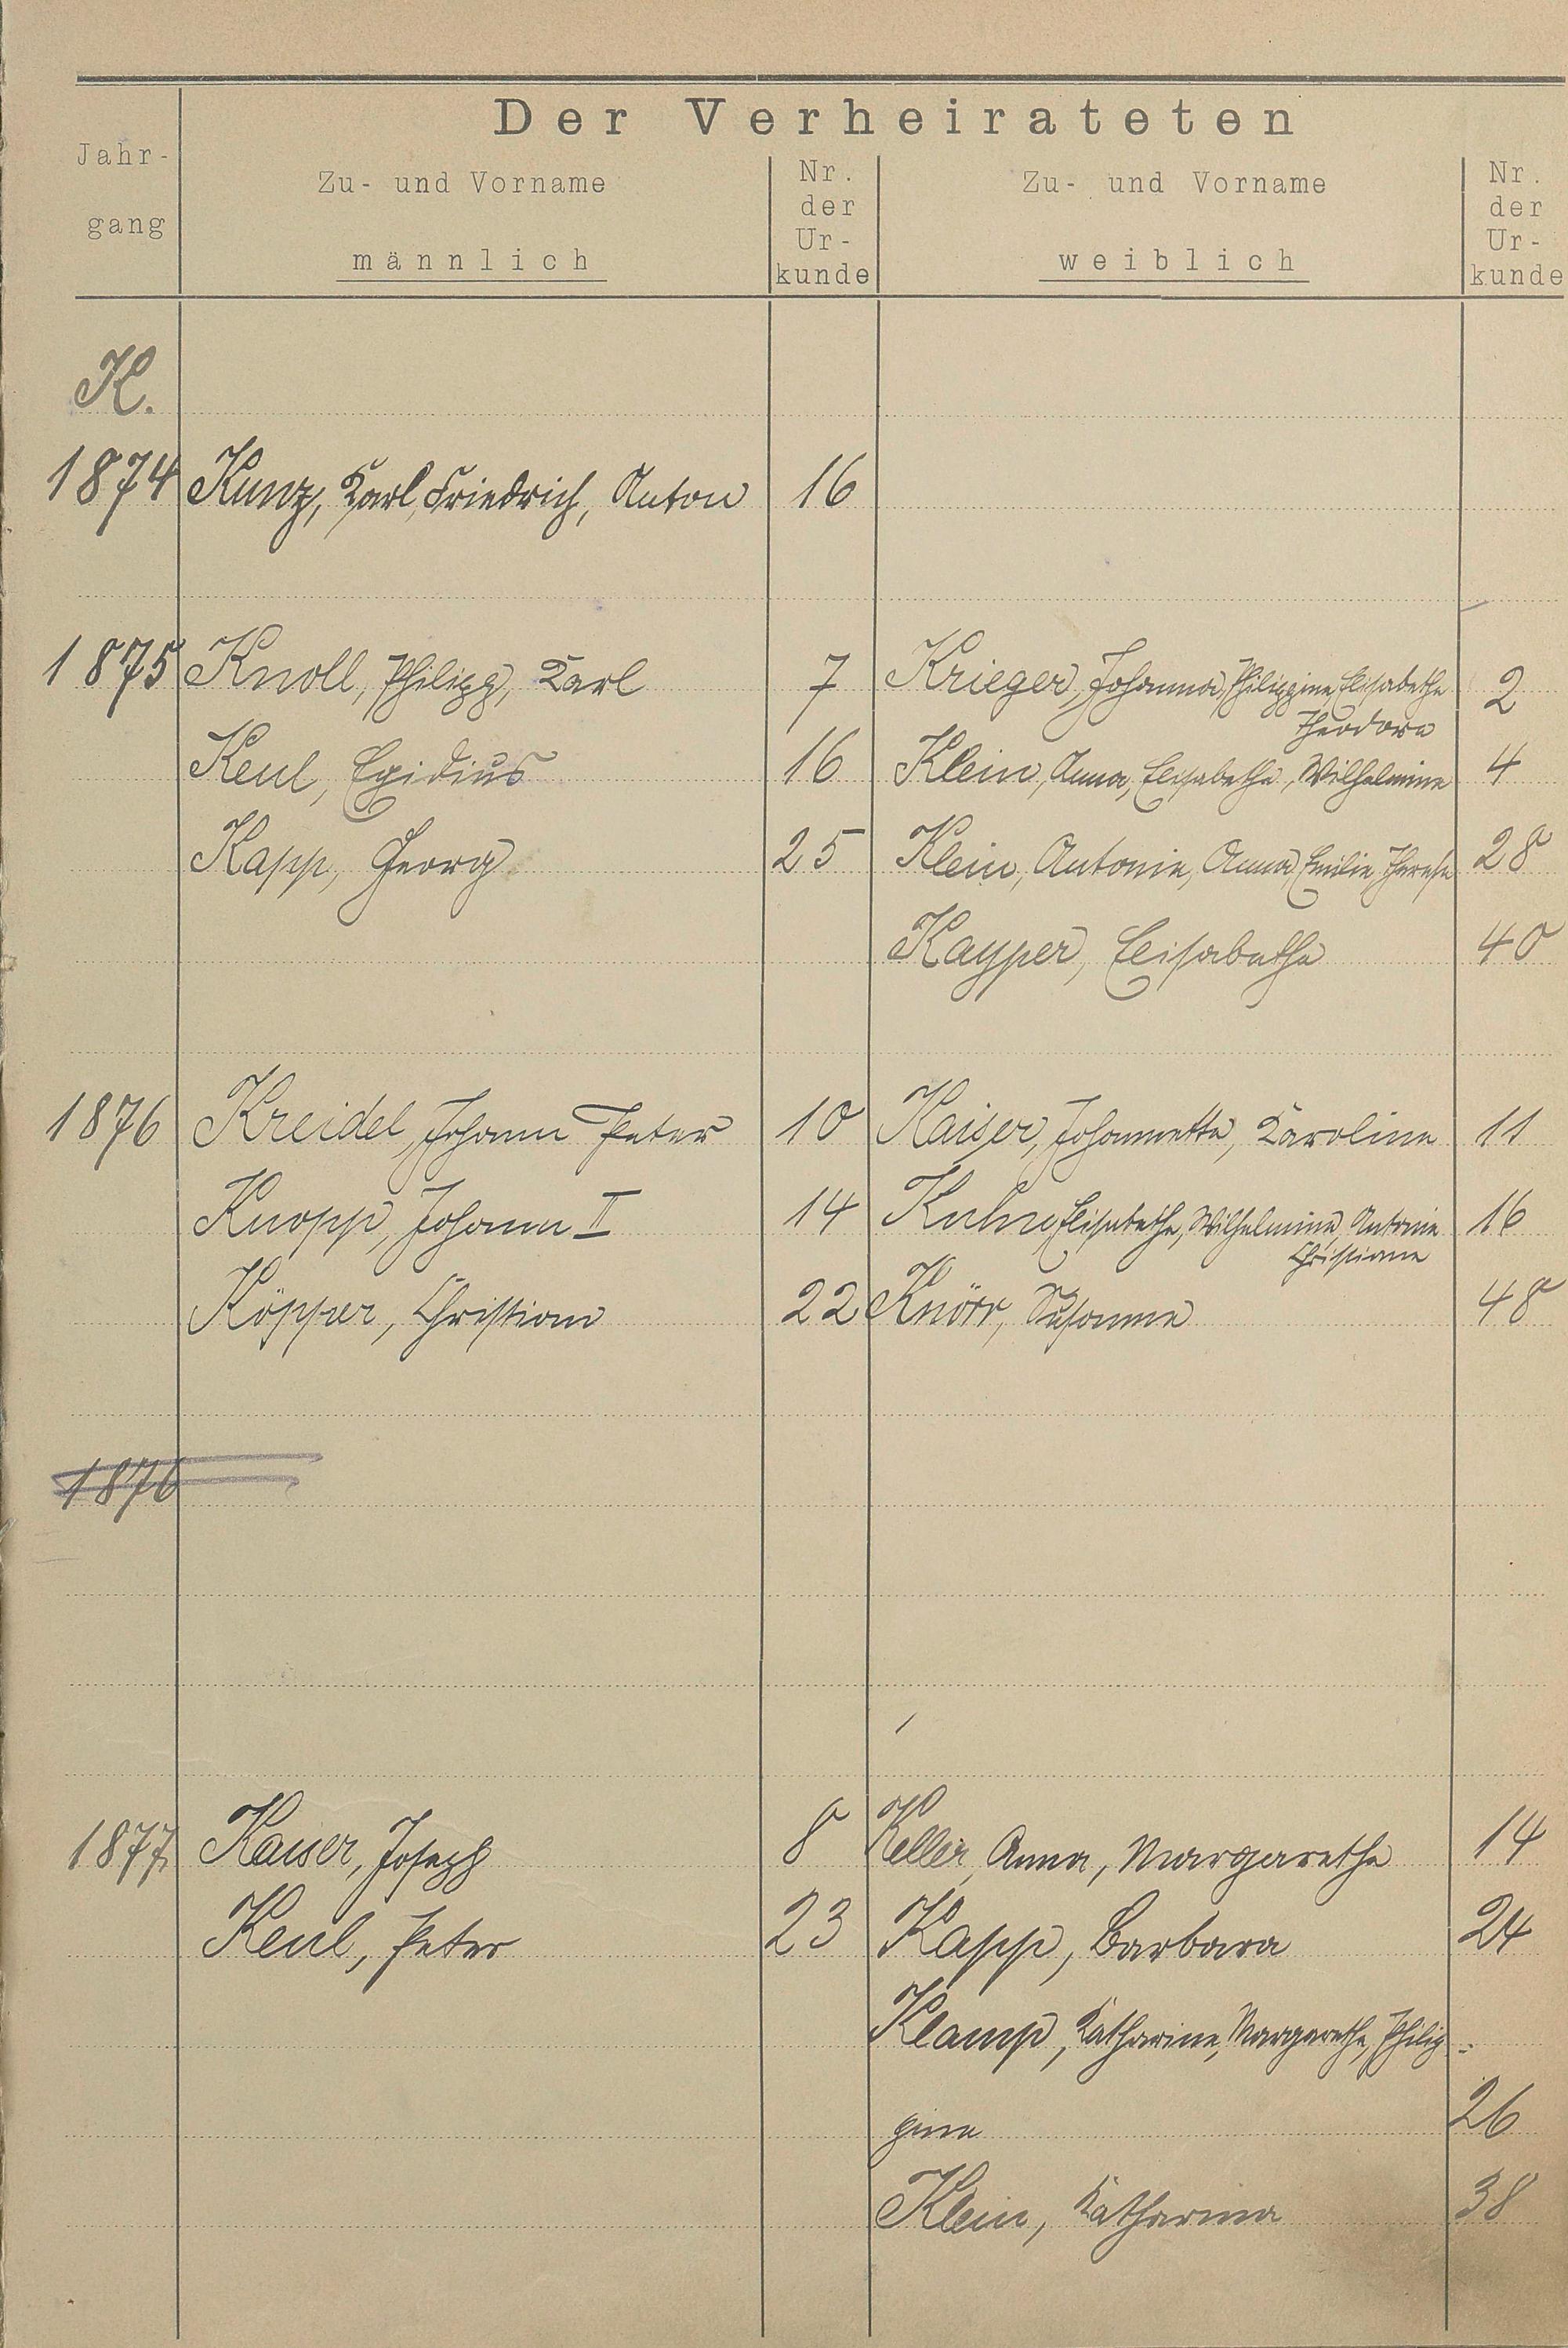 Der Verheirateten
Jahr-
gang
Zu- und Vorname
männlich
Nr.
der
Ur-
kunde
Zu- und Vorname
weiblich
Nr.
der
Ur-
kunde
K.
1874 Kunz, Karl, Friedrich, Anton 16
1875 Knoll, Philipp, Karl 7 Krieger, Johanna, Philippine, Elisabethe 2
Theodora
Keul, Egidius 16 Klein, Anna, Elisabetha, Wilhelmine 4
Kapp, Georg 25 Klein, Antonie, Anna, Emilie, Therese 28
Kayper, Elisabetha 40
1876 Kreidel, Johann Peter 10 Kaiser, Johannette, Karoline 11
Knopp, Johann II 14 Kuhn, Elisabethe, Wilhelmine, Antonie 16
Christiane
Köpper, Christian 22 Knörr, Susanne 48
1876
1877 Kaiser, Joseph 8 Keller, Anna, Margarethe 14
Keul, Peter 23 Kapp, Barbara 24
Klamp, Katharine, Margarethe, Philip-
pine 26
Klein, Katharina 38